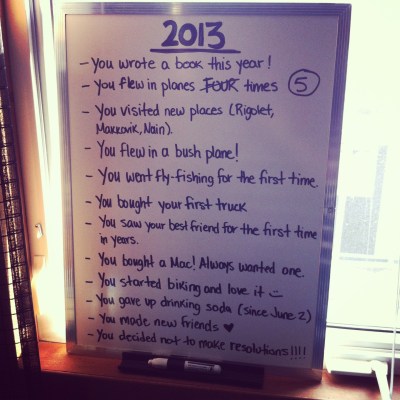 2013
- You wrote a book this year!
- You flew in planes FOUR times 5
- You visited new places (Rigolet,
Makkovik, Nain).
- You flew in a bush plane!
- You went fly-fishing for the first time
- You bought your first truck
- You saw your best friend for the first time
in years.
- You bought a Mac! Always wanted one.
- You started biking and love it :)
- You gave up drinking soda (since June 2)
- You made new friends ♥
- You decided not to make resolutions!!!!